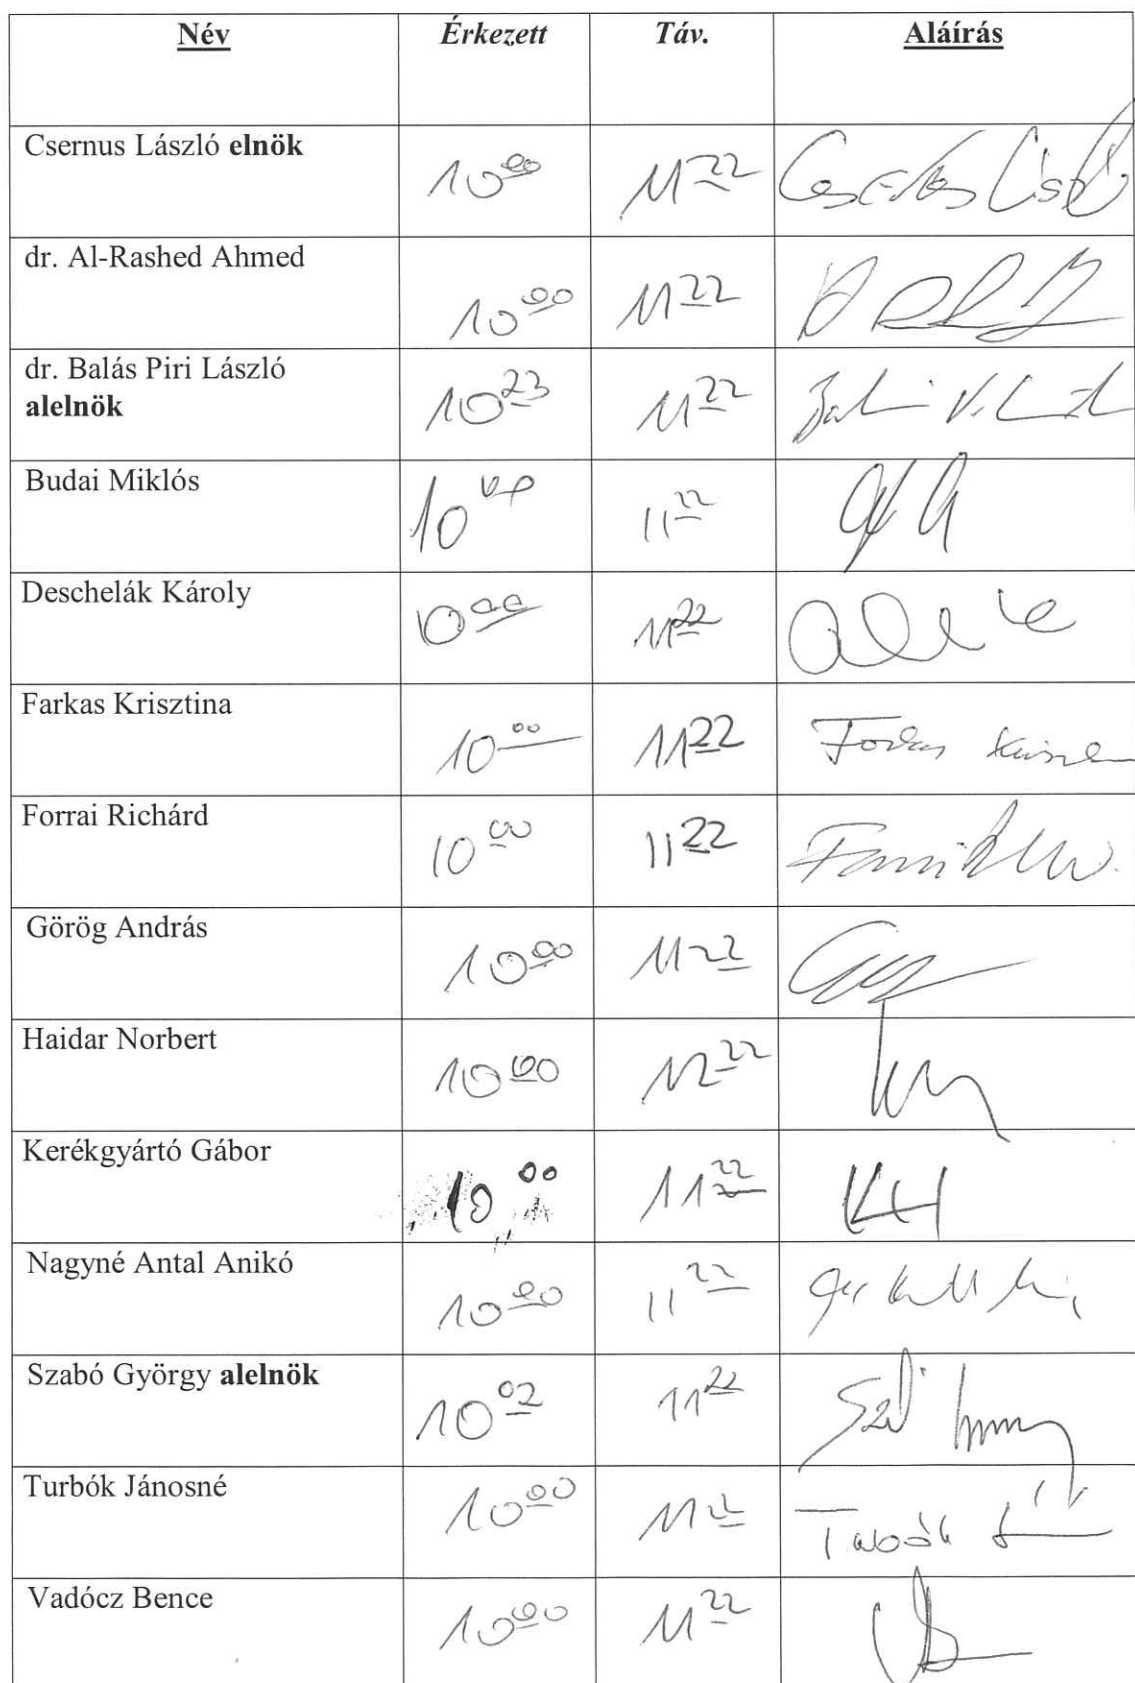 Név Érkezett Táv. Aláírás
Csernus László elnök 10⁰⁰ 11²²
dr. Al-Rashed Ahmed 10⁰⁰ 11²²
dr. Balás Piri László
alelnök 10²³ 11²²
Budai Miklós 10⁰⁰ 11²²
Deschelák Károly 10⁰⁰ 11²²
Farkas Krisztina 10⁰⁰ 11²² Farkas Krisztina
Forrai Richárd 10⁰⁰ 11²² Forrai
Görög András 10⁰⁰ 11²²
Haidar Norbert 10⁰⁰ 12²²
Kerékgyártó Gábor 10⁰⁰ 11²²
Nagyné Antal Anikó 10⁰⁰ 11²²
Szabó György alelnök 10⁰² 11²²
Turbók Jánosné 10⁰⁰ 11²² Turbók
Vadócz Bence 10⁰⁰ 11²²